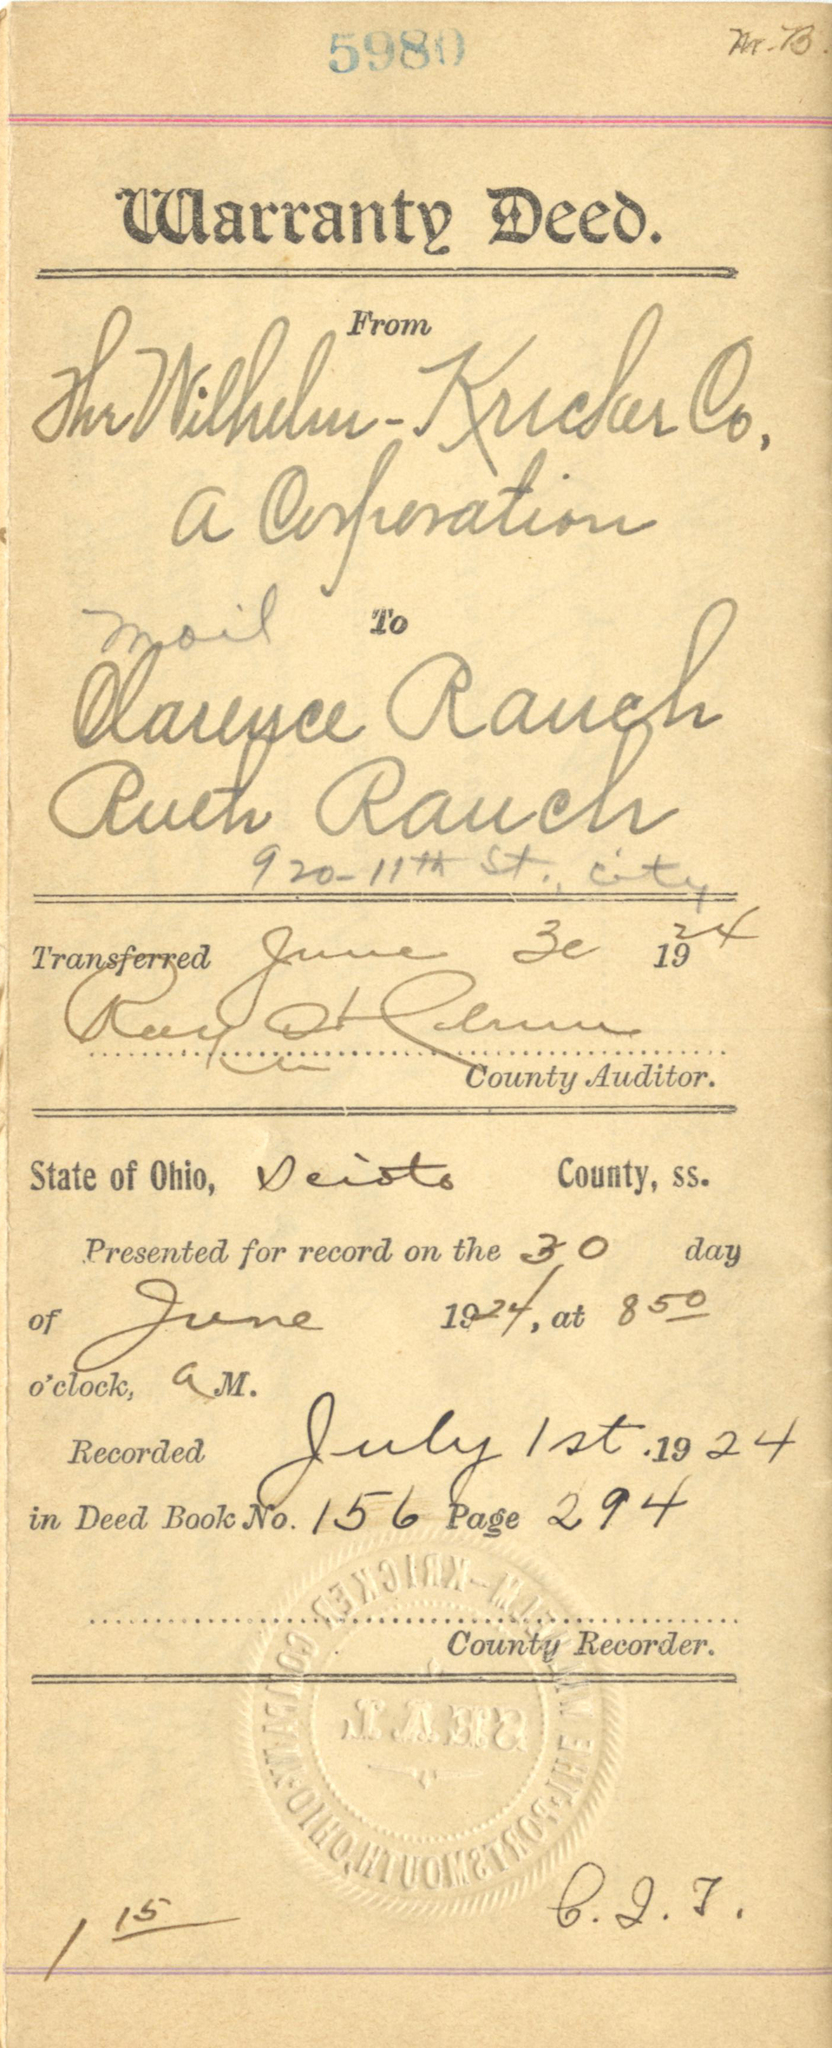 5980
Warranty Deed.
From
The Wilhelm-Kricker Co,
A Corporation
mail To
Clarence Rauch
Ruth Rauch
920-11th St., City
Transferred June 30 1924
County Auditor.
State of Ohio, Scioto County, ss.
Presented for record on the 30 day
of June 1924, at 8 50
o'clock, a M.
Recorded July 1st 1924
in Deed Book No. 156 Page 294
County Recorder.
THE WILHELM-KRICKER COMPANY
SEAL
PORTSMOUTH, OHIO
C. I. T.
1 15